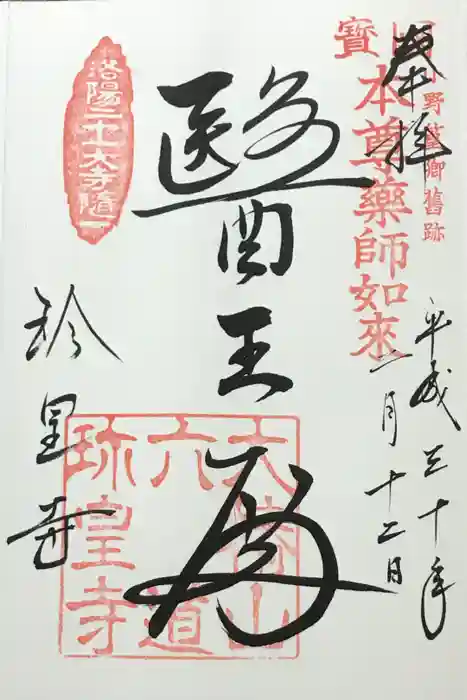 奉拝
國寶
野篁卿舊跡
本尊藥師如來
平成三十年
二月十二日
醫王殿
洛陽二十大寺隨一
大椿山
六道
珎皇寺
珍皇寺